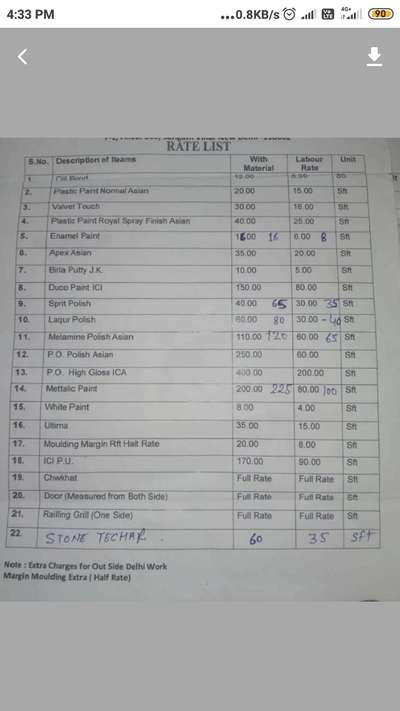 4:33 PM ...0.8KB/s Vo LTE 4G+ 90
RATE LIST
S.No. Description of Iteams With Material Labour Rate Unit
1. Oil Bond
2. Plastic Paint Normal Asian 20.00 15.00 Sft
3. Valvet Touch 30.00 18.00 Sft
4. Plastic Paint Royal Spray Finish Asian 40.00 25.00 Sft
5. Enamel Paint 16 6.00 8 Sft
6. Apex Asian 35.00 20.00 Sft
7. Birla Putty J.K. 10.00 5.00 Sft
8. Duco Paint ICI 150.00 80.00 Sft
9. Sprit Polish 40.00 65 30.00 35 Sft
10. Laqur Polish 60.00 80 30.00 - 40 Sft
11. Melamine Polish Asian 110.00 120 60.00 65 Sft
12. P.O. Polish Asian 250.00 60.00 Sft
13. P.O. High Gloss ICA 400.00 200.00 Sft
14. Mettalic Paint 200.00 225 80.00 100 Sft
15. White Paint 8.00 4.00 Sft
16. Ultima 35.00 15.00 Sft
17. Moulding Margin Rft Half Rate 20.00 8.00 Sft
18. ICI P.U. 170.00 90.00 Sft
19. Chwkhat Full Rate Full Rate Sft
20. Door (Measured from Both Side) Full Rate Full Rate Sft
21. Railling Grill (One Side) Full Rate Full Rate Sft
22. STONE TECHAR . 60 35 sft
Note : Extra Charges for Out Side Delhi Work
Margin Moulding Extra ( Half Rate)